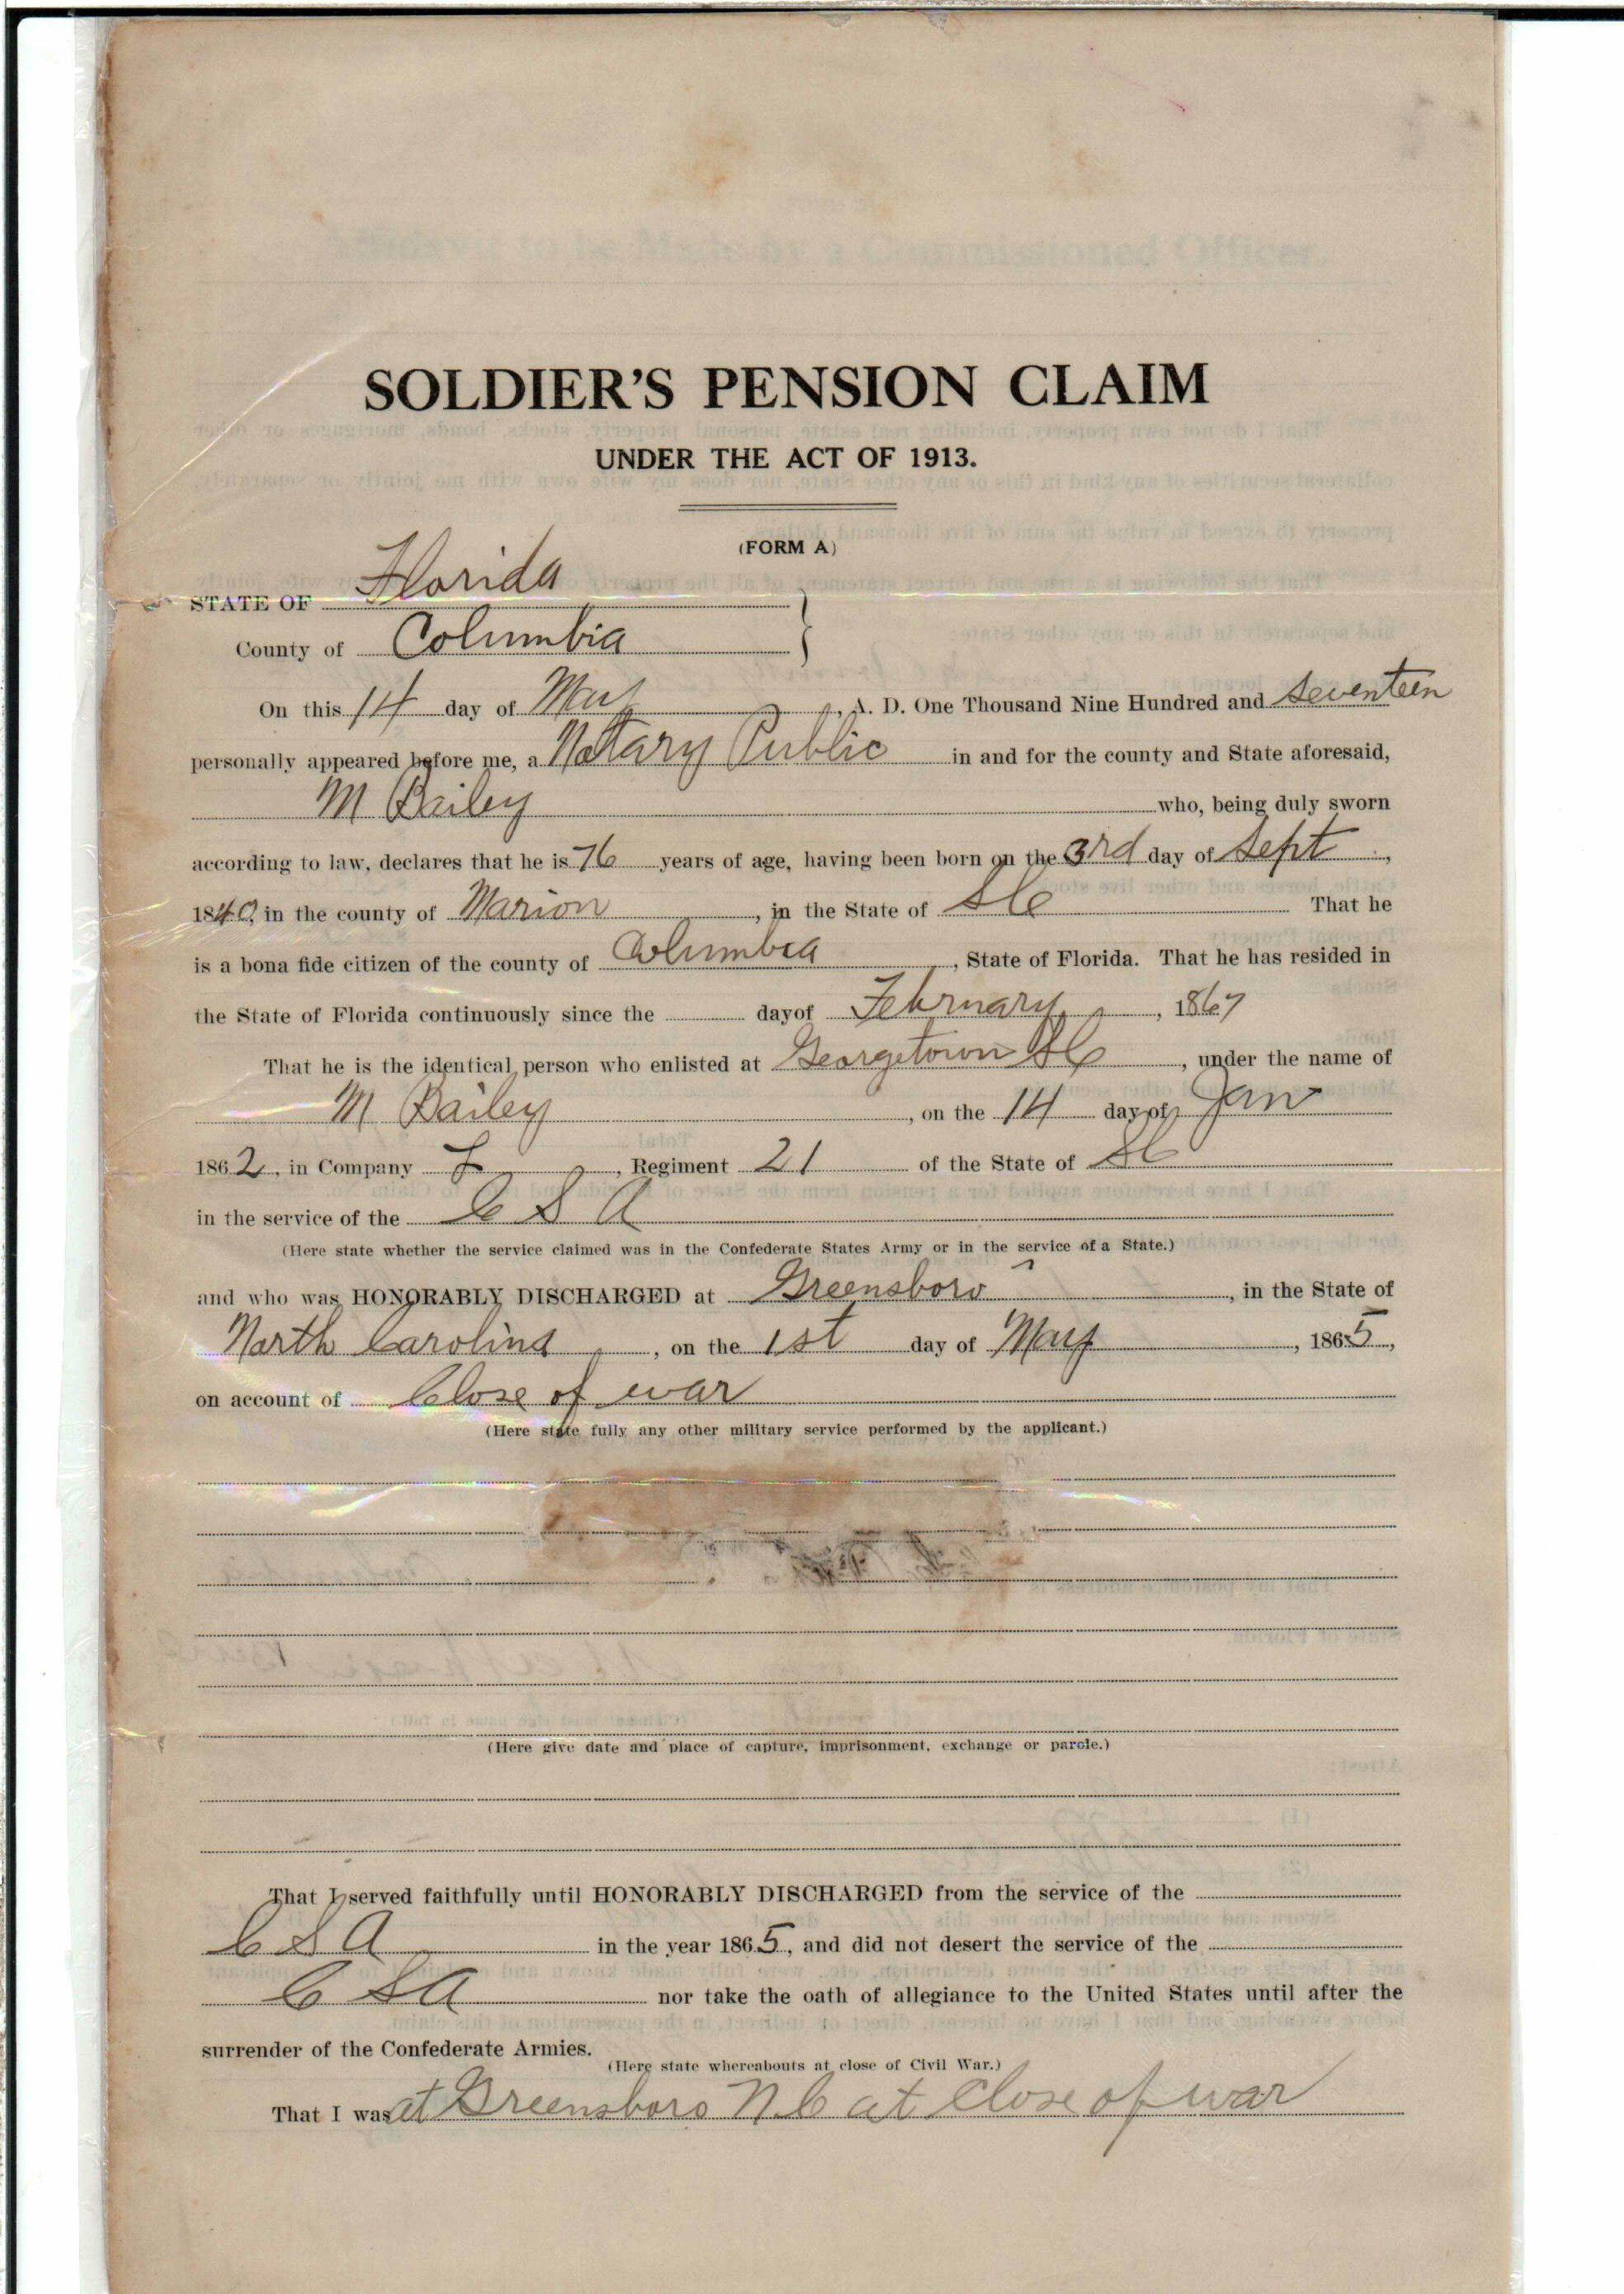 SOLDIER'S PENSION CLAIM
UNDER THE ACT OF 1913.
(FORM A)
STATE OF Florida
County of Columbia
On this 14 day of May, A. D. One Thousand Nine Hundred and Seventeen
personally appeared before me, a Notary Public in and for the county and State aforesaid,
M Bailey who, being duly sworn
according to law, declares that he is 76 years of age, having been born on the 3rd day of Sept,
1840, in the county of Marion, in the State of SC That he
is a bona fide citizen of the county of Columbia, State of Florida. That he has resided in
the State of Florida continuously since the day of February, 1867
That he is the identical person who enlisted at Georgetown SC, under the name of
M Bailey, on the 14 day of Jan
1862, in Company, Regiment 21 of the State of SC
in the service of the C S A
(Here state whether the service claimed was in the Confederate States Army or in the service of a State.)
and who was HONORABLY DISCHARGED at Greensboro, in the State of
North Carolina, on the 1st day of May, 1865,
on account of Close of war
(Here state fully any other military service performed by the applicant.)
(Here give date and place of capture, imprisonment, exchange or parole.)
That I served faithfully until HONORABLY DISCHARGED from the service of the
C S A in the year 1865, and did not desert the service of the
C S A nor take the oath of allegiance to the United States until after the
surrender of the Confederate Armies.
(Here state whereabouts at close of Civil War.)
That I was at Greensboro N C at Close of war